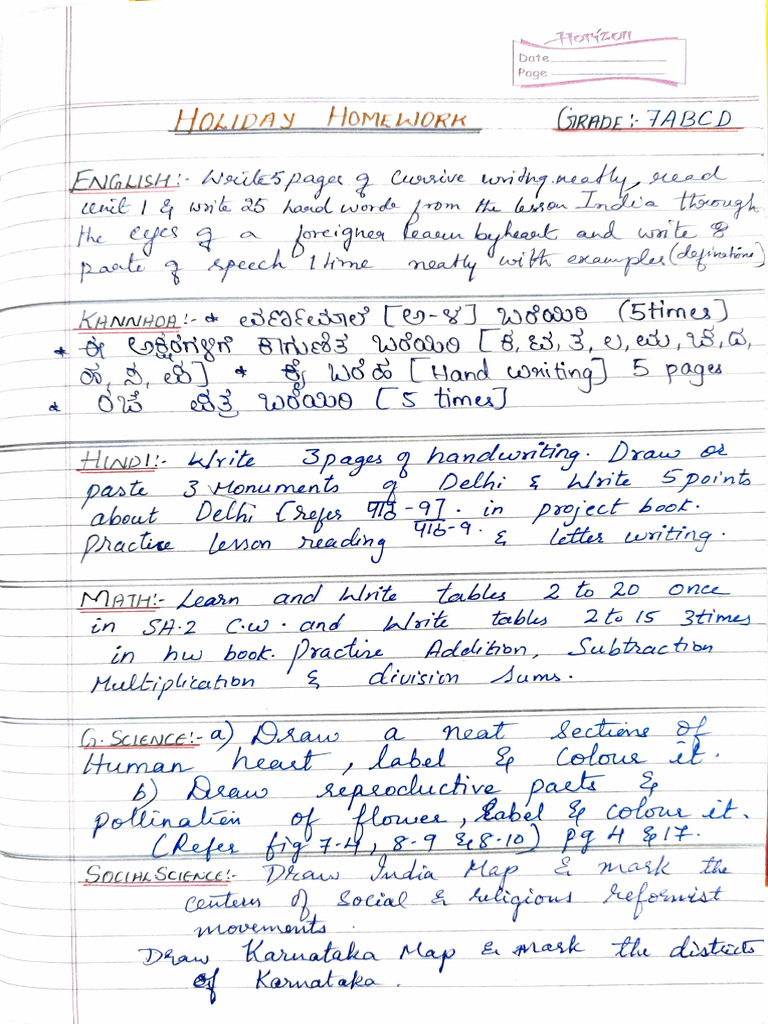 Horizon
Date
Page
HOLIDAY HOMEWORK GRADE:- 7ABCD
ENGLISH:- Write 5 pages of Cursive writing neatly, read
unit 1 & write 25 hard words from the lesson India through
the eyes of a foreigner learn byheart and write 8
parts of speech 1 time neatly with examples (definations)
KANNADA:- * ವರ್ಣಮಾಲೆ [ಅ-ಳ] ಬರೆಯಿರಿ (5times]
* ಈ ಅಕ್ಷರಗಳಿಗೆ ಕಾಗುಣಿತ ಬರೆಯಿರಿ [ಕ, ಟ, ತ, ಲ, ಮ, ಬ, ದ,
ಹ, ನ, ಪ] * ಕೈ ಬರಹ [Hand writing] 5 pages
* ಚಿತ್ರ ಬರೆಯಿರಿ [5 times]
HINDI:- Write 3 pages of handwriting. Draw or
paste 3 Monuments of Delhi & Write 5 points
about Delhi [refer पाठ-9]. in project book.
Practice lesson reading पाठ-9. & letter writing.
MATH:- Learn and Write tables 2 to 20 once
in SA-2 C.W. and Write tables 2 to 15 3times
in hw book. Practise Addition, Subtraction
Multiplication & division Sums.
G. SCIENCE:- a) Draw a neat sections of
Human heart, label & Colour it.
b) Draw reproductive parts &
pollination of flower, Label & colour it.
(Refer fig 7-4, 8-9 & 8-10) pg 4 & 17.
SOCIAL SCIENCE:- Draw India Map & mark the
centers of social & religious reformist
movements.
Draw Karnataka Map & mark the districts
of Karnataka.